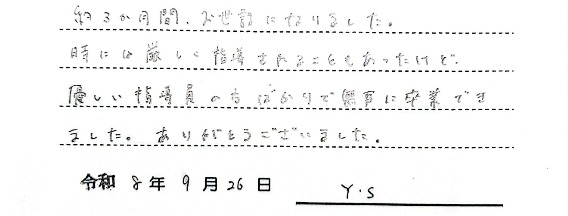 約3か月間、お世話になりました。
時には厳しく指導されることもあったけど、
優しい指導員の方ばかりで無事に卒業でき
ました。ありがとうございました。
令和 8年 9月 26日 Y.S